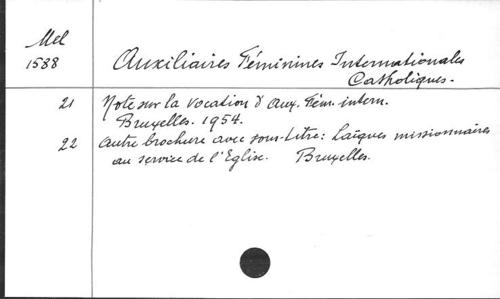 Mel
1588
Auxiliaires Féminines Internationales
Catholiques.
21 Note sur la vocation d'Aux. Fém. intern.
Bruxelles. 1954.
22 autre brochure avec sous-titre: Laïques missionnaires
au service de l'Eglise. Bruxelles.